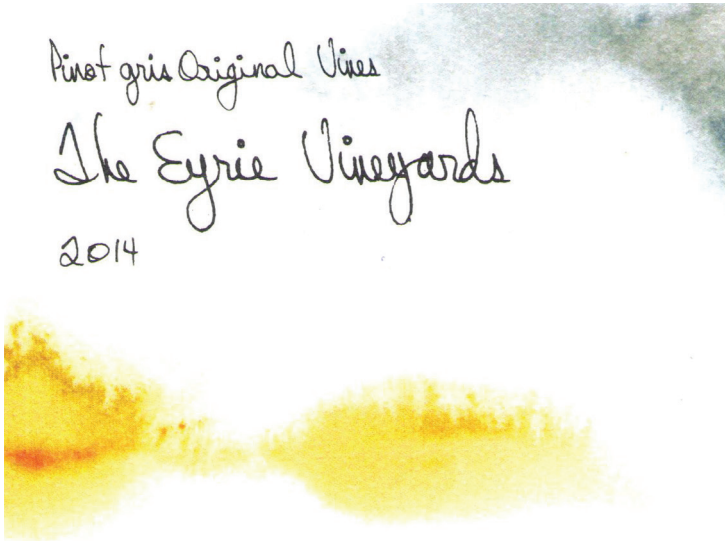 Pinot gris Original Vines
The Eyrie Vineyards
2014